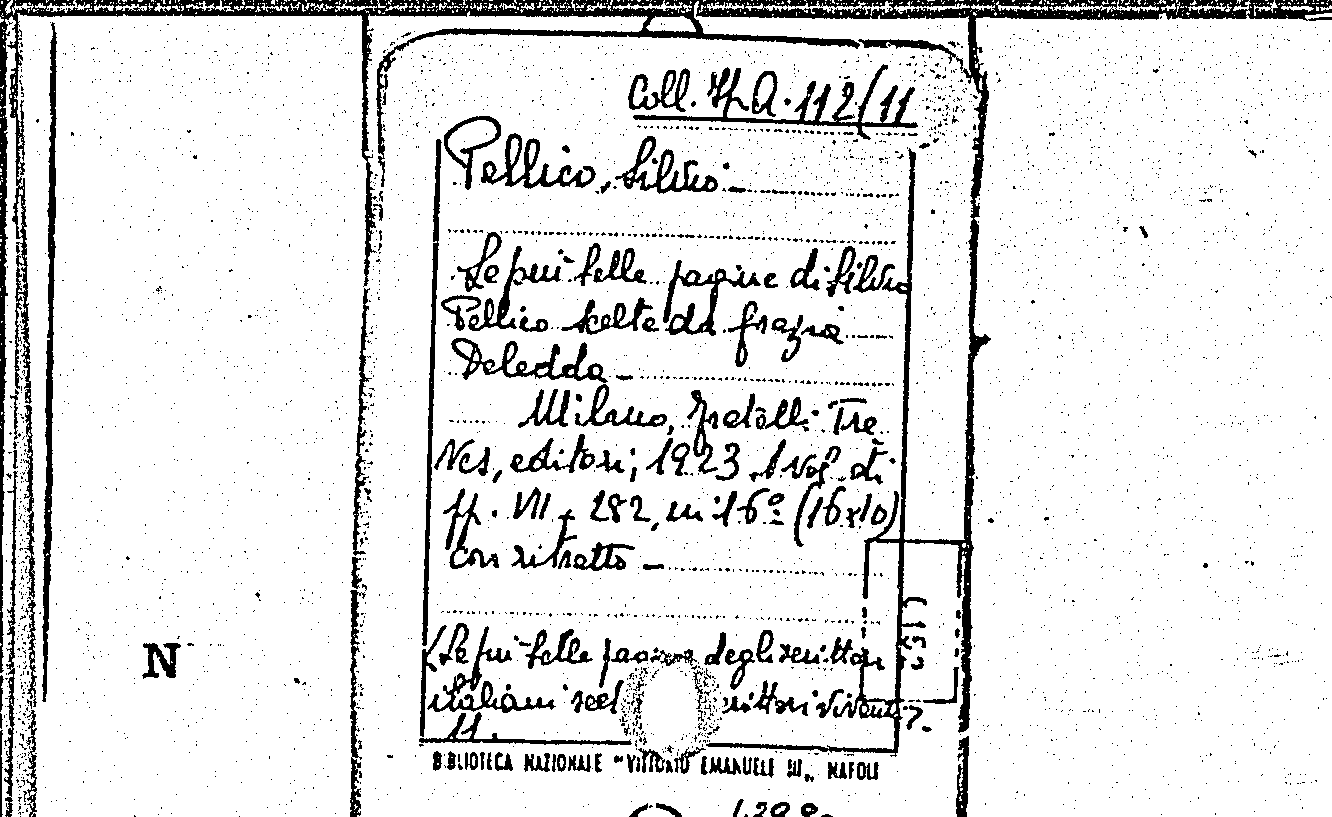 Coll. It. A. 112/11
Pellico, Silvio -
Le più belle pagine di Silvio
Pellico scelte da Grazia
Deledda -
Milano, Fratelli Tre
ves, editori, 1923. 1 vol. di
pp. VII - 282, in 16º (16x10)
con ritratto -
(Le più belle pagine degli scrittori
italiani scel scrittori viventi).
11.
BIBLIOTECA NAZIONALE "VITTORIO EMANUELE III„ NAPOLI
N